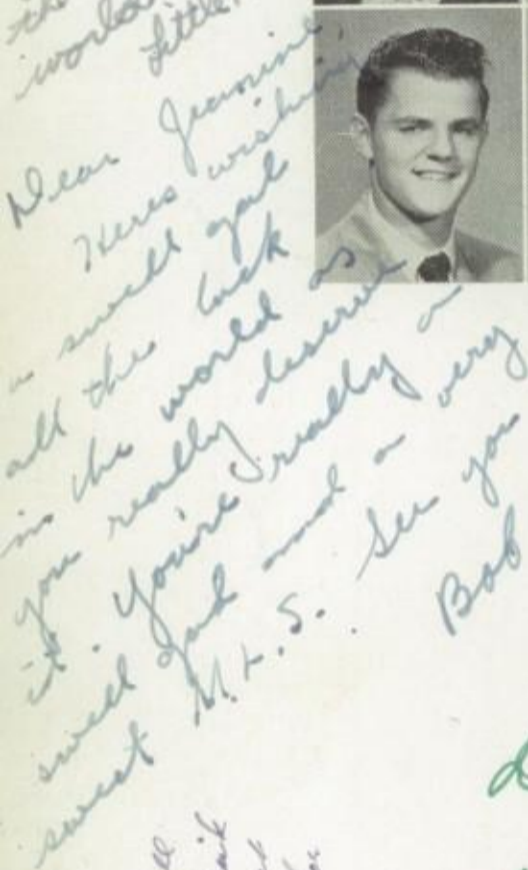 the
world
Little,
Dear Jeannine,
Heres wishing
a swell gal
all the luck
in the world as
you really deserve
it. You're really a
swell gal and a very
sweet M.L.S. See you
Bob